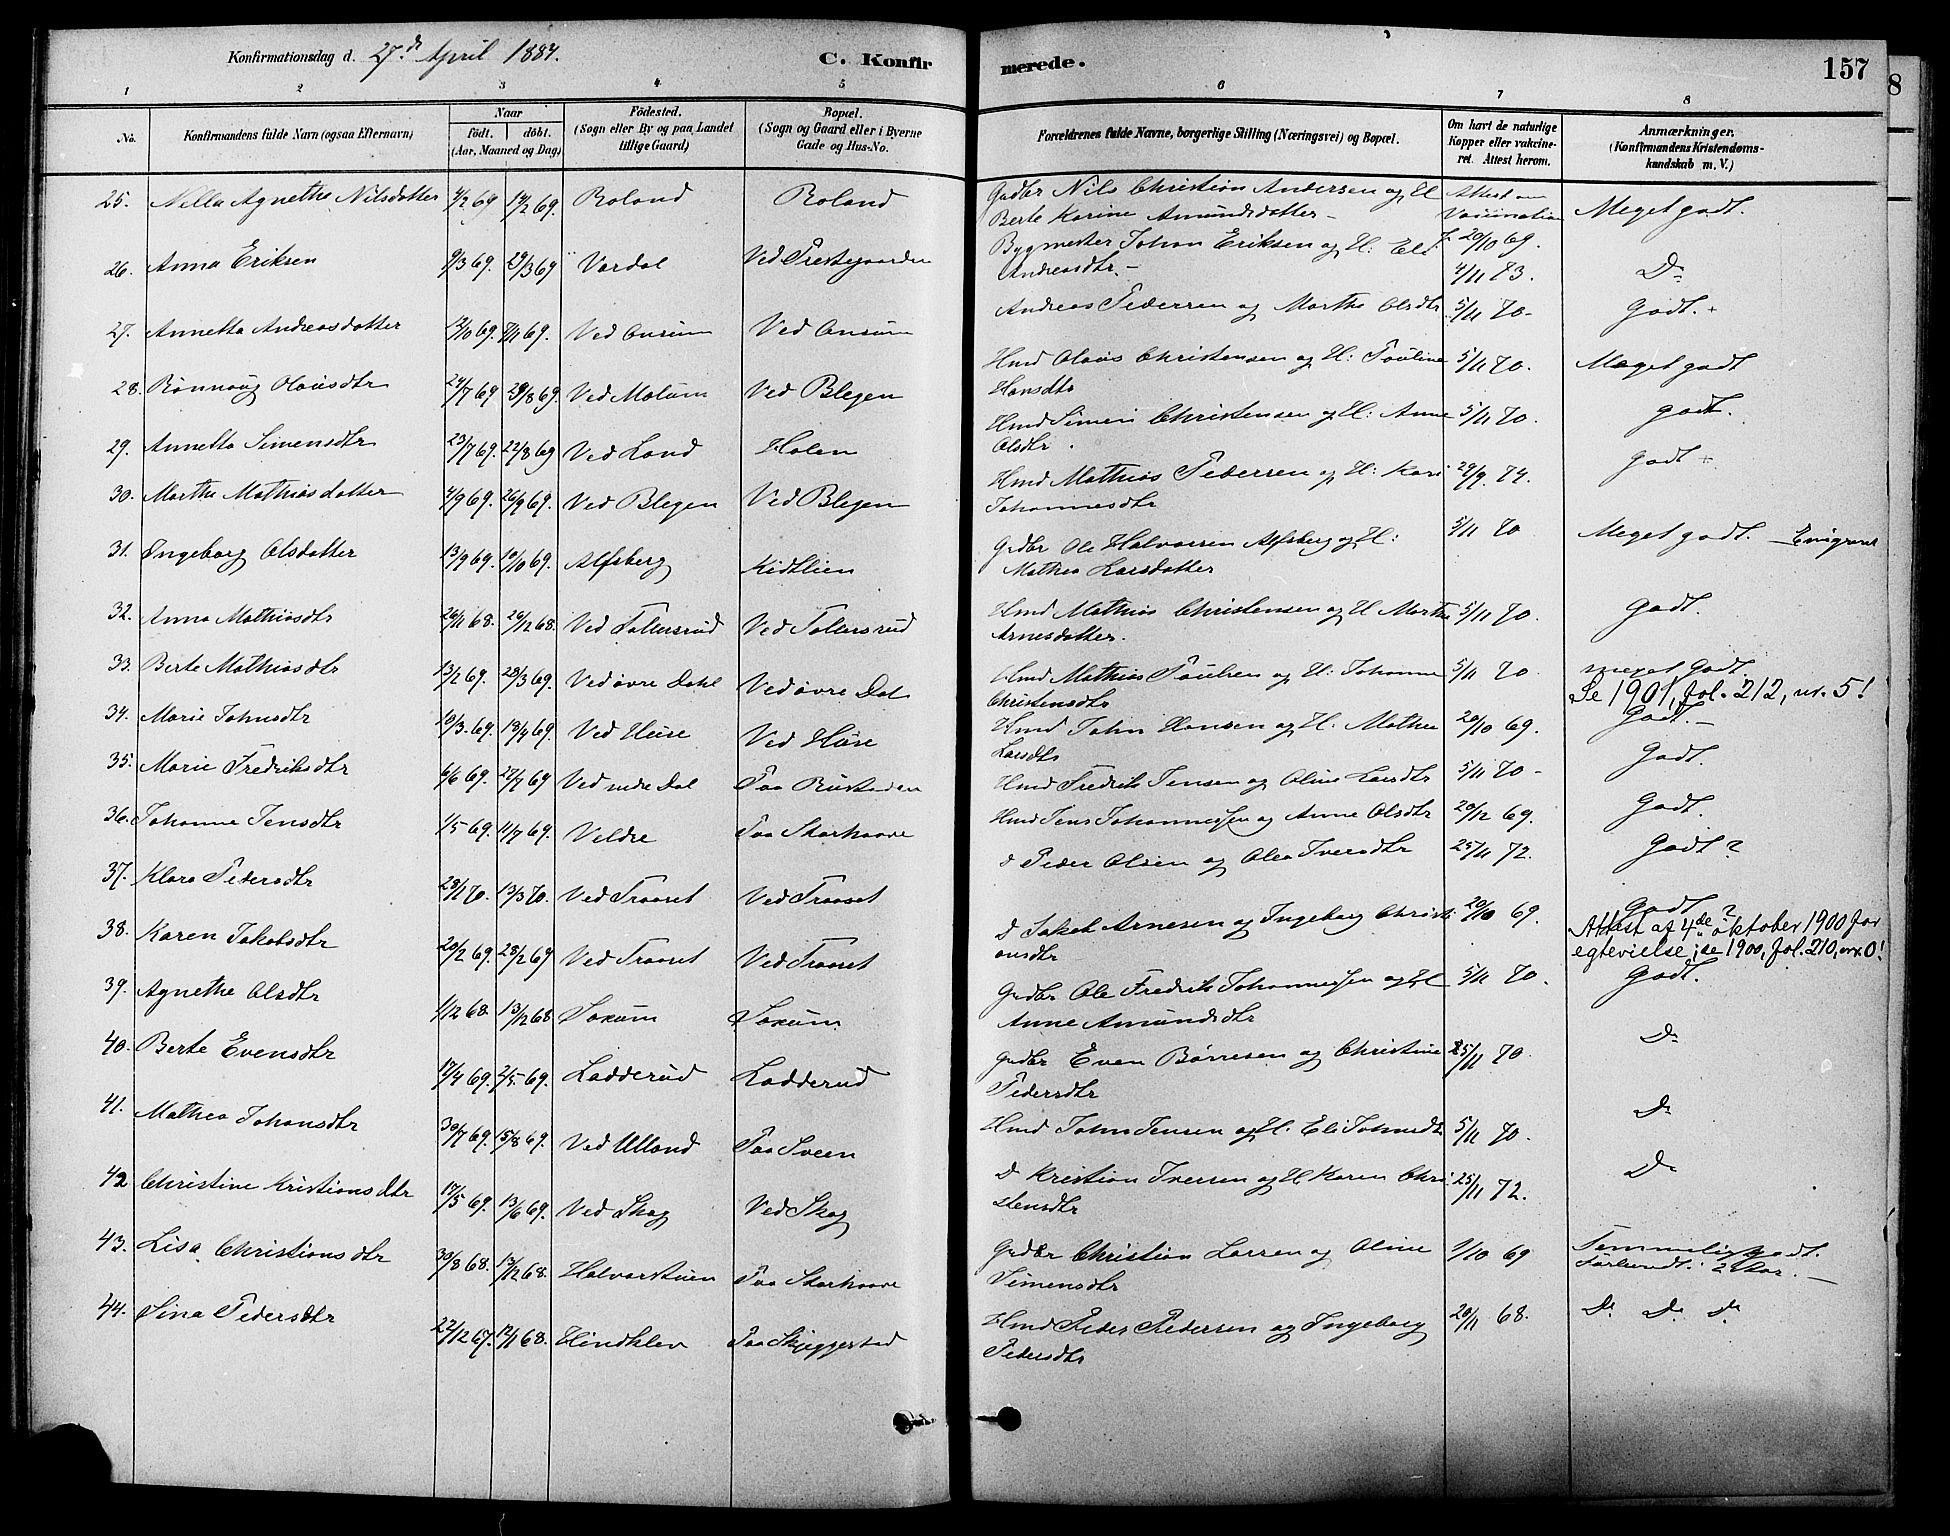 Konfirmationsdag d. 27de April 1884.
C. Konfir
merede.
157
8
1 2 3 4 5 6 7 8
No.
Konfirmandens fulde Navn (ogsaa Efternavn)
Naar
födt. döbt.
(Aar, Maaned og Dag)
Födested.
(Sogn eller By og paa Landet
tillige Gaard)
Bopæl.
(Sogn og Gaard eller i Byerne
Gade og Hus-No.
Forældrenes fulde Navne, borgerlige Stilling (Næringsvei) og Bopæl.
Om havt de naturlige
Kopper eller vakcine-
ret. Attest herom.
Anmærkninger.
(Konfirmandens Kristendoms-
kundskab m. V.)
25. Nella Agnethe Nilsdatter 4/2 69 14/2 69. Roland Roland Gadbr Nils Christian Andersen og H Attest om Meget godt.
Berte Karine Amundsdatter Vaccination
26. Anna Eriksen 9/3 69. 29/3 69 Vardal Ved Prestegaarden Bygmester Johan Eriksen og H: Eli 20/10 69.
Andreasdtr. 4/11 73. Do
27. Annetta Andreasdatter 12/10 69. 7/11 69. Ved Onsum Ved Onsum Andreas Pedersen og Marthe Olsdtr 5/11 70. Godt.
28. Rönnaug Olausdtr 24/7 69 29/8 69. Ved Molum Ved Blegen Hmd Olaus Christensen og H: Pauline 5/11 70. Meget godt
Hansdtr
29. Annetta Simensdtr 23/7 69. 22/8 69 Ved Land Holen Hmd Simen Christensen og H: Anne 5/11 70. godt.
Olsdtr
30. Marthe Mathiasdatter 4/9 69. 26/9 69. Ved Blegen Ved Blegen Hmd Mathias Pedersen og H: Kari 29/9. 74. godt
Johannesdtr
31. Ingeborg Olsdatter 13/9 69. 10/10 69. Alfsberg Kidtlien Grdbr Ole Halvorsen Alfsberg og H: 5/11 70 Meget godt.
Mathea Larsdatter
32. Anna Mathiasdtr 26/11 68. 26/12 68. Ved Tollersrud Ved Tollersrud Hmd Mathias Christensen og H Marthe 5/11 70. Godt.
Arnesdatter.
33. Berte Mathiasdtr 13/2 69. 28/3 69. Ved övre Dahl Ved övre Dal Hmd Mathias Paulsen og H: Johanne 5/11 70. meget godt.
Christensdtr Se 1901, fol. 212, nr. 5!
34. Marie Johnsdtr 10/3 69. 13/4 69. Ved Huse Ved Huse Hmd John Hansen og H: Mathea 20/10 69. Godt.
Larsdtr
35. Marie Fredriksdtr 6/6 69. 27/7 69 Ved nedre Dal Paa Rustaden Hmd Fredrik Jensen og Oline Larsdtr 5/11 70 Godt.
36. Johanne Jensdtr 1/5 69. 11/7 69. Veldre Paa Skarhaave Hmd Jens Johannessen og Anne Olsdtr 20/12 69. Godt.
37. Klara Pedersdtr 23/1 70. 13/3 70. Ved Traaset Ved Traaset d Peder Olsen og Olea Iversdtr 25/11 72. Godt?
38. Karen Jakobsdtr 20/2 69. 28/2 69 Ved Traaset Ved Traaset d Jakob Arnesen og Ingeborg Christi 20/10 69. Godt
ansdtr Attest af 4de? oktober 1900 for
egtevielse; se 1900, fol. 210, nr. 0!
39. Agnethe Olsdtr 1/12 68. 13/12 68 Saxum Saxum Gadbr Ole Fredrik Johannessen og H 5/11 70. Godt.
Anne Amundsdtr
40. Berte Evensdtr 17/4 69. 2/5 69. Ladderud Ladderud Gadbr Even Börresen og Christine 25/11 70. Do
Pedersdtr
41. Mathea Johansdtr 30/7 69. 15/8 69. Ved Ulland Paa Sveen Hmd John Jensen og H. Eli Johnsdtr 5/11 70. Do
42 Christine Kristiansdtr 17/5 69. 13/6 69. Ved Skog Ved Skog d Kristian Iversen og H Karen Chri 25/11 72. Do
stensdtr
43. Lisa Christiansdtr 30/8 68. 13/12 68. Halvorstuen Paa Skarhaave Grdbr Christian Larsen og Oline 9/10 69 Temmelig godt.
Simensdtr
44. Sina Pedersdtr 22/12 67. 12/1 68. Hindklev Paa Skjeggestad Hmd Peder Pedersen og Ingeborg 20/11 68. Do Do Do
Pedersdtr